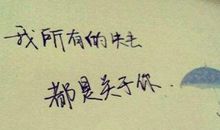 我所有的失去
都是关于你.